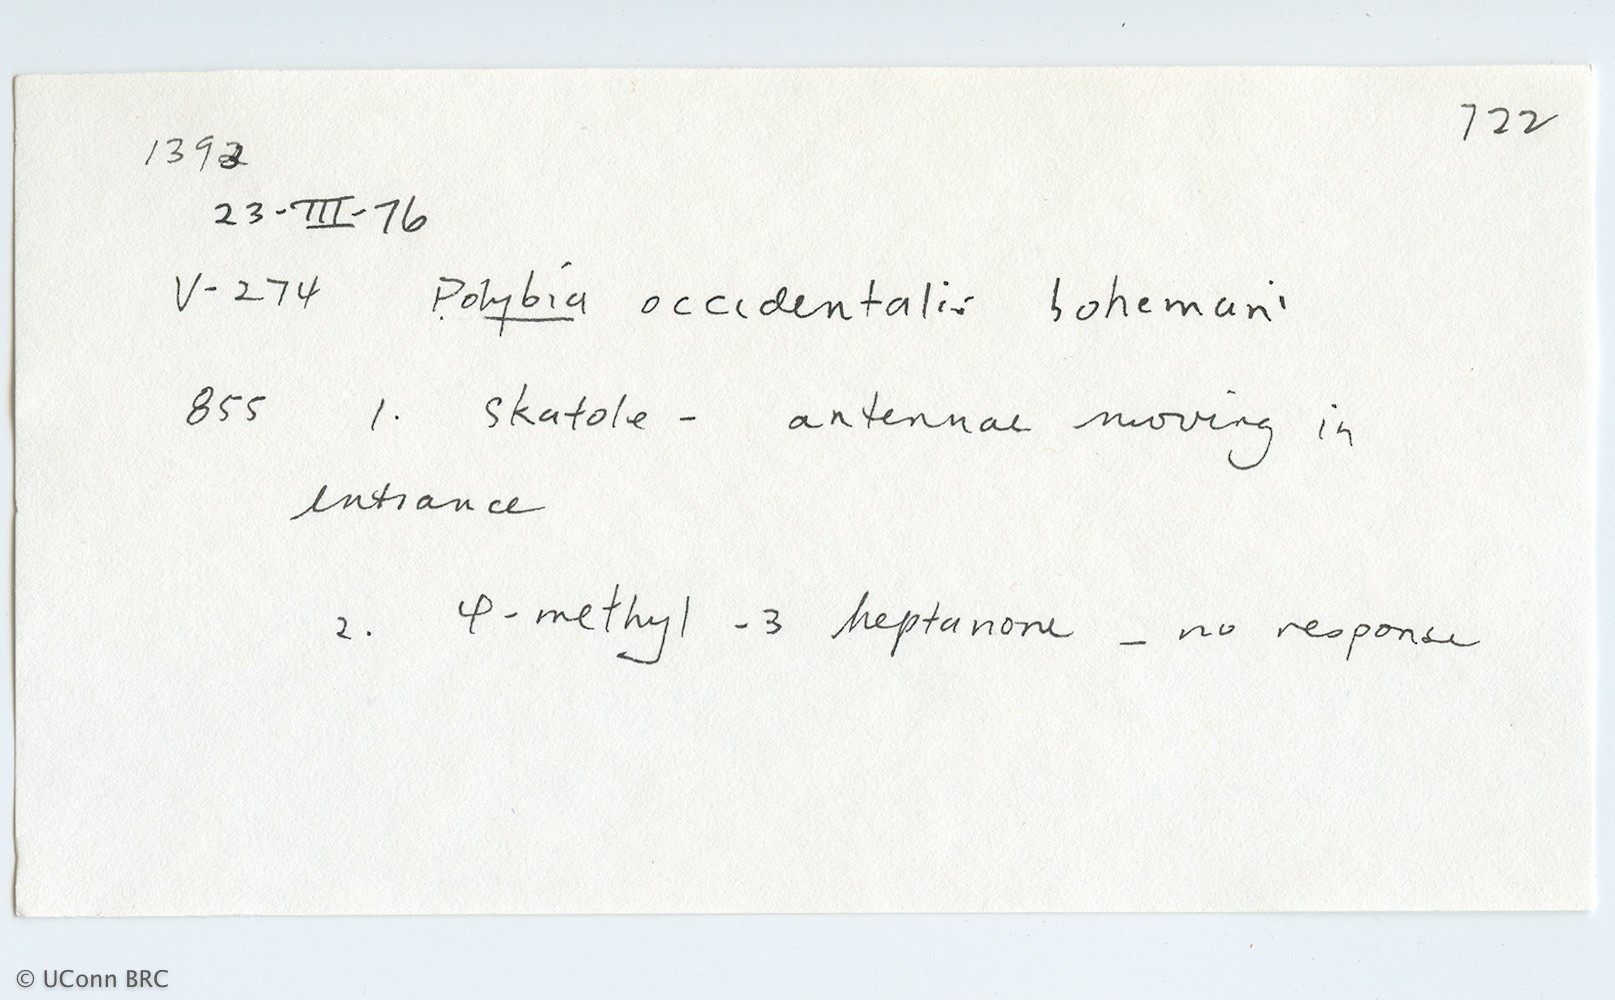 722
1392
23-III-76
V-274 Polybia occidentalis bohemani
855 1. Skatole - antennae moving in
entrance
2. 4-methyl -3 heptanone - no response
© UConn BRC